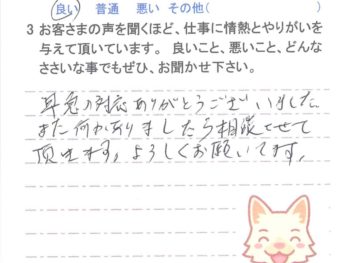 良い 普通 悪い その他( )
3 お客さまの声を聞くほど、仕事に情熱とやりがいを
与えて頂いています。 良いこと、悪いこと、どんな
ささいな事でもぜひ、お聞かせ下さい。
早急の対応ありがとうございました。
また何か有りましたら相談させて
頂きます。よろしくお願いします。